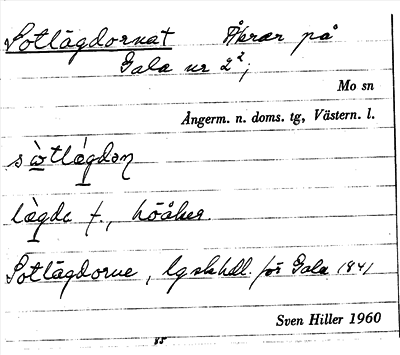 Sotlägdornat Åkrar på
Gala nr 2²,
Mo sn
Ångerm. n. doms. tg, Västern. l.
sòtlägdən
lägde f., höåker.
Sotlägdorne, lgskhdl. för Gala 1841
Sven Hiller 1960